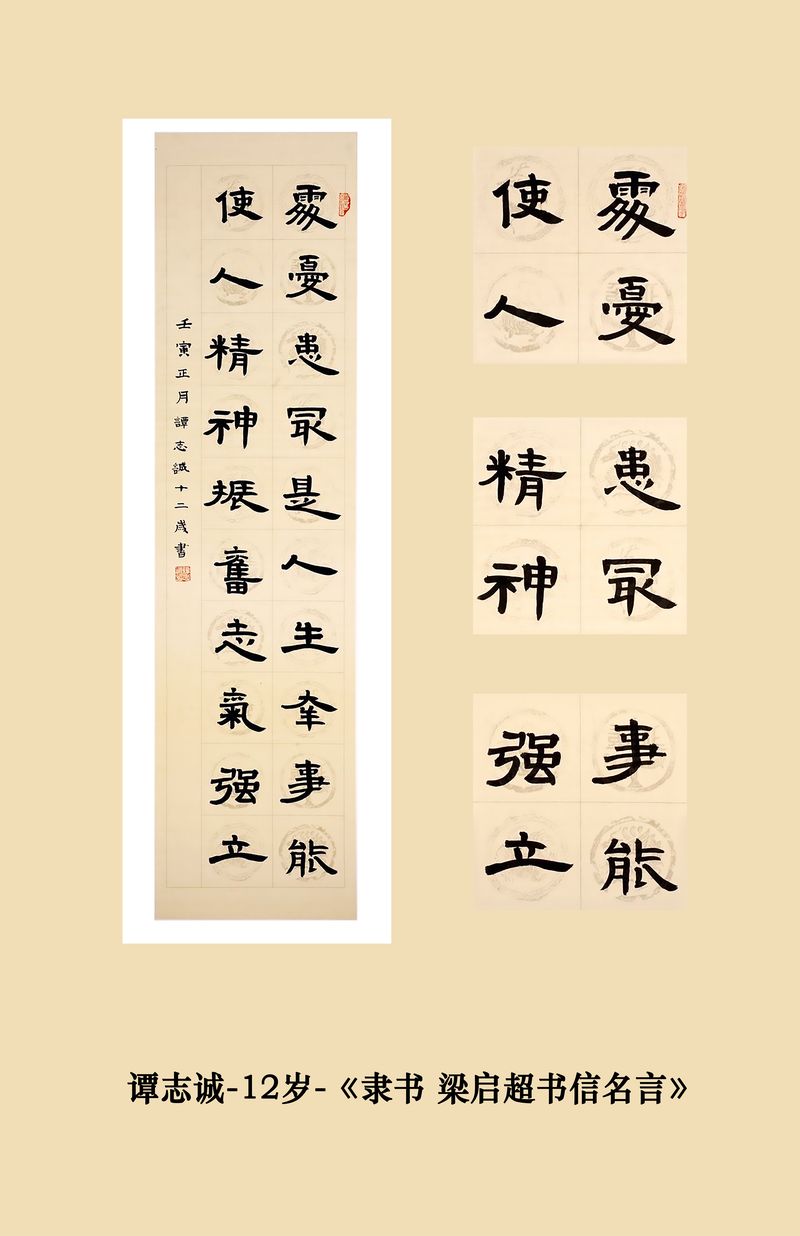 處憂患冣是人生幸事能
使人精神振奮志氣强立
壬寅正月譚志誠十二歲書
處憂
使人
患冣
精神
事能
强立
谭志诚-12岁-《隶书 梁启超书信名言》